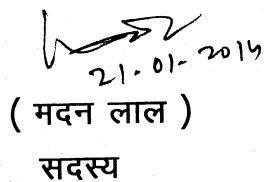 21-01-2014
( मदन लाल )
सदस्य